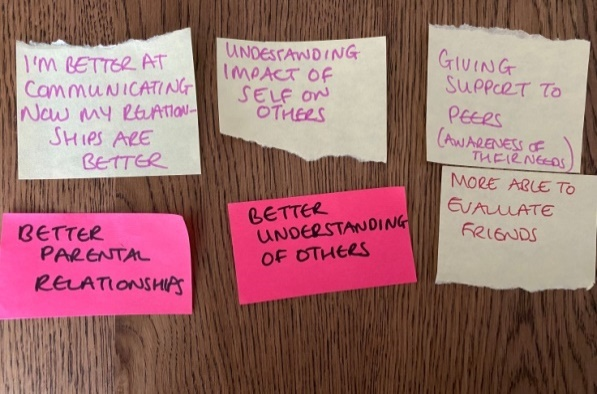 I'M BETTER AT
COMMUNICATING
NOW MY RELATION-
SHIPS ARE
BETTER
UNDESTANDING
IMPACT OF
SELF ON
OTHERS
GIVING
SUPPORT TO
PEERS
(AWARENESS OF
THEIR NEEDS)
BETTER
PARENTAL
RELATIONSHIPS
BETTER
UNDERSTANDING
OF OTHERS
MORE ABLE TO
EVALUATE
FRIENDS